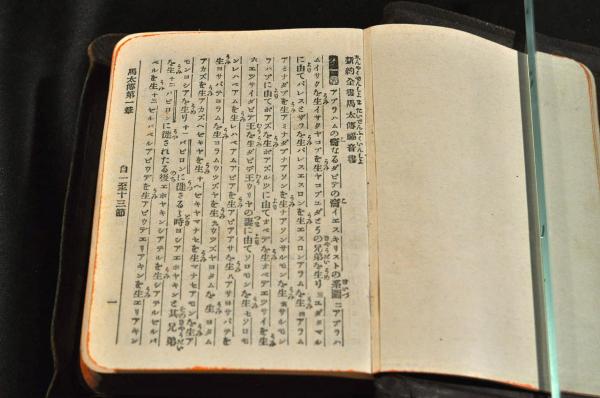 新約全書馬太傳福音書
第一章 アブラハムの裔なるダビデの裔イエスキリストの系圖 二アブラハ
ムイサクを生イサクヤコブを生ヤコブユダとその兄弟を生り 三ユダタマル
に由てパレスとザラを生パレスエスロンを生エスロンアラムを生 四アラム
アミナダブを生アミナダブナアソンを生ナアソンサルモンを生 五サルモン
ラハブに由てボアズを生ボアズルツに由てオベデを生オベデエツサイを生
六エツサイダビデ王を生ダビデ王ウリヤの妻に由てソロモンを生 七ソロモ
ンレハベアムを生レハベアムアビアを生アビアアサを生 八アサヨサパテを
生ヨサパテヨラムを生ヨラムウツズヤを生 九ウツズヤヨタムを生 ヨタム
アカズを生アカズヘゼキヤを生 十ヘゼキヤマナセを生マナセアモンを生ア
モンヨシアを生り 十一バビロンに徙さるゝ時ヨシアエホヤキンと其兄弟
を生 十二バビロンに徙されたる後エホヤキンシアテルを生シアテルゼルバ
ベルを生 十三ゼルバベルアビウデを生アビウデエリアキンを生エリアキン
馬太傳第一章 自一至十三節 一